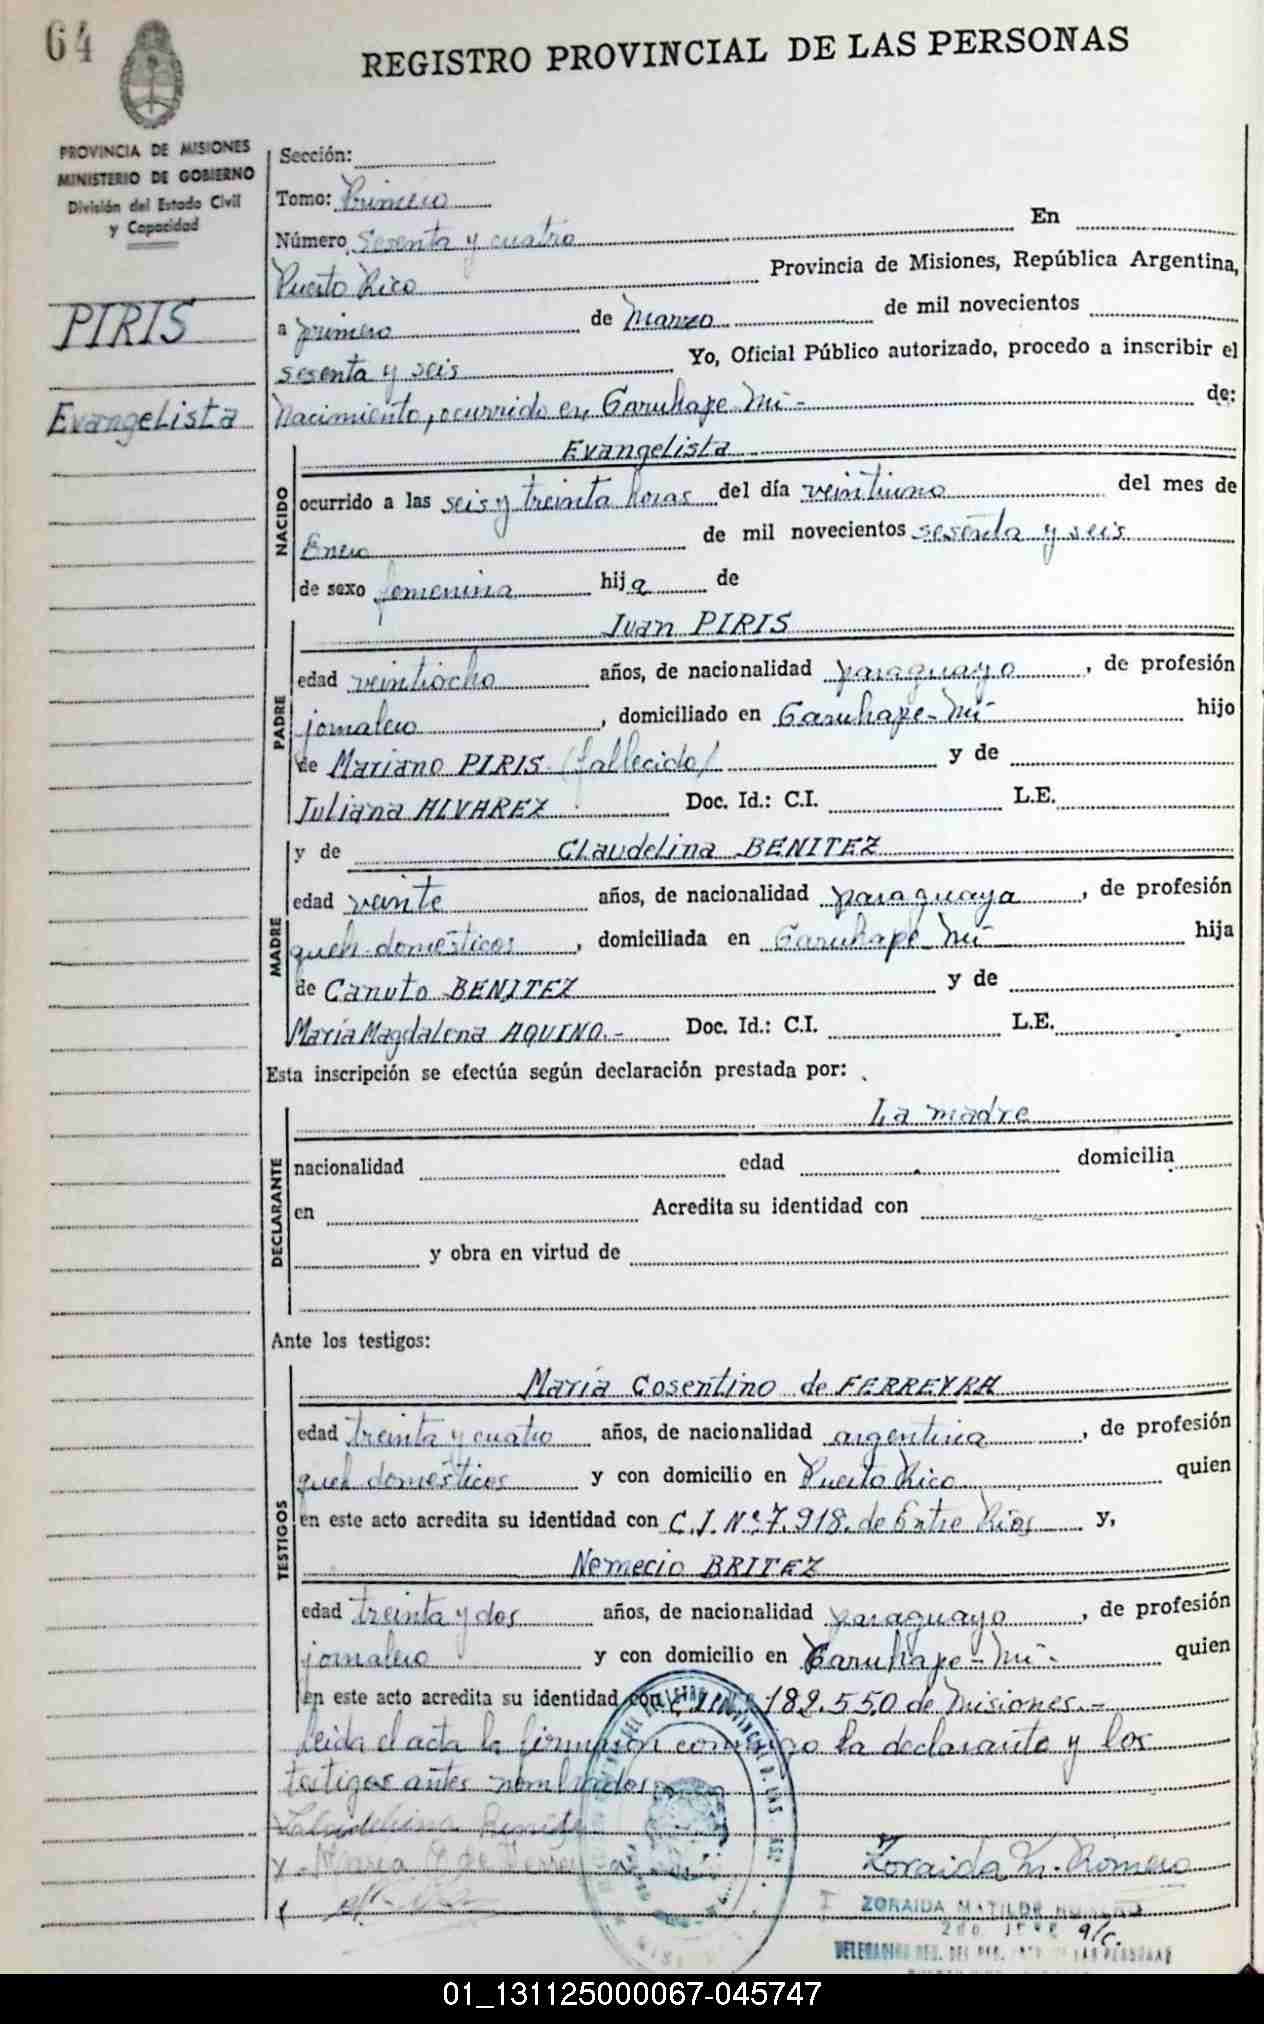 64
REGISTRO PROVINCIAL DE LAS PERSONAS
PROVINCIA DE MISIONES
MINISTERIO DE GOBIERNO
División del Estado Civil
y Capacidad
PIRIS
Evangelista
Sección:
Tomo: Primero
Número Sesenta y cuatro En
Puerto Rico Provincia de Misiones, República Argentina,
a primero de Marzo de mil novecientos
sesenta y seis Yo, Oficial Público autorizado, procedo a inscribir el
Nacimiento, ocurrido en Garuhape-Mi- de:
NACIDO
Evangelista
ocurrido a las seis y treinta horas del día veintiuno del mes de
Enero de mil novecientos sesenta y seis
de sexo femenina hija de
PADRE
Juan PIRIS
edad veintiocho años, de nacionalidad paraguayo, de profesión
jornalero, domiciliado en Garuhape-Mi- hijo
de Mariano PIRIS (fallecido) y de
Juliana ALVAREZ Doc. Id.: C.I. L.E.
MADRE
y de Claudelina BENITEZ
edad veinte años, de nacionalidad paraguaya, de profesión
queh domésticos, domiciliada en Garuhape-Mi- hija
de Canuto BENITEZ y de
María Magdalena AQUINO.- Doc. Id.: C.I. L.E.
Esta inscripción se efectúa según declaración prestada por:
DECLARANTE
La madre
nacionalidad edad domicilia
en Acredita su identidad con
y obra en virtud de
Ante los testigos:
TESTIGOS
María Cosentino de FERREYRA
edad treinta y cuatro años, de nacionalidad argentina, de profesión
queh domésticos y con domicilio en Puerto Rico quien
en este acto acredita su identidad con C.I. Nº 7.918. de Entre Rios y,
Nemecio BRITEZ
edad treinta y dos años, de nacionalidad paraguayo, de profesión
jornalero y con domicilio en Garuhape-Mi- quien
en este acto acredita su identidad con 182.550 de Misiones.-
Leida el acta la firman conmigo la declarante y los
testigos antes nombrados
Zoraida M. Romero
ZORAIDA MATILDE ROMERO
2do. JEFE a/c.
01_131125000067-045747